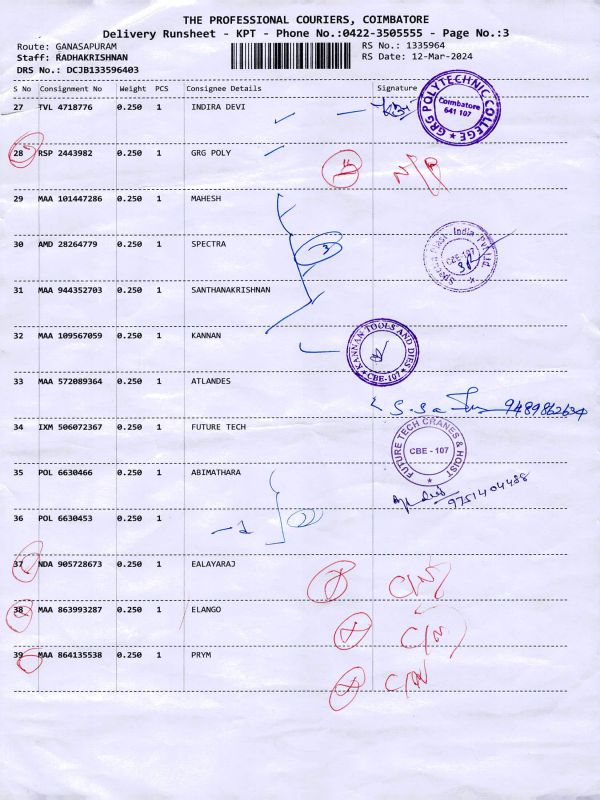 THE PROFESSIONAL COURIERS, COIMBATORE
Delivery Runsheet - KPT - Phone No.:0422-3505555 - Page No.:3
Route: GANASAPURAM RS No.: 1335964
Staff: RADHAKRISHNAN RS Date: 12-Mar-2024
DRS No.: DCJB133596403
S No Consignment No Weight PCS Consignee Details Signature
27 TVL 4718776 0.250 1 INDIRA DEVI
GRG POLYTECHNIC COLLEGE
Coimbatore
641 107
28 RSP 2443982 0.250 1 GRG POLY
N/P
29 MAA 101447286 0.250 1 MAHESH
30 AMD 28264779 0.250 1 SPECTRA
3
India Pvt Ltd
CBE-107
31 MAA 944352703 0.250 1 SANTHANAKRISHNAN
32 MAA 109567059 0.250 1 KANNAN
KANNAN TOOLS AND DIES
CBE-107
33 MAA 572089364 0.250 1 ATLANDES
9489862634
34 IXM 506072367 0.250 1 FUTURE TECH
FUTURE TECH CRANES & HOIST
CBE - 107
35 POL 6630466 0.250 1 ABIMATHARA
9751404488
36 POL 6630453 0.250 1
37 NDA 905728673 0.250 1 EALAYARAJ
C/N
38 MAA 863993287 0.250 1 ELANGO
C/N
39 MAA 864135538 0.250 1 PRYM
C/N